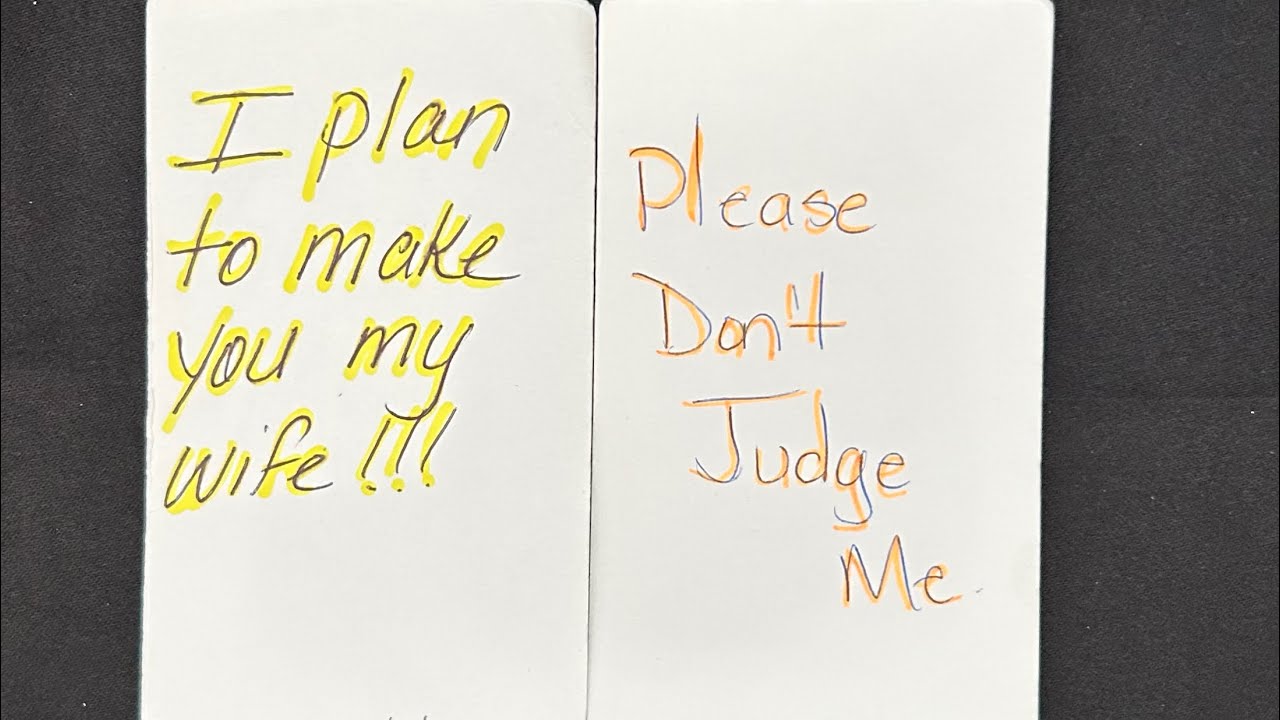 I plan
to make
you my
wife!!!
Please
Don't
Judge
Me